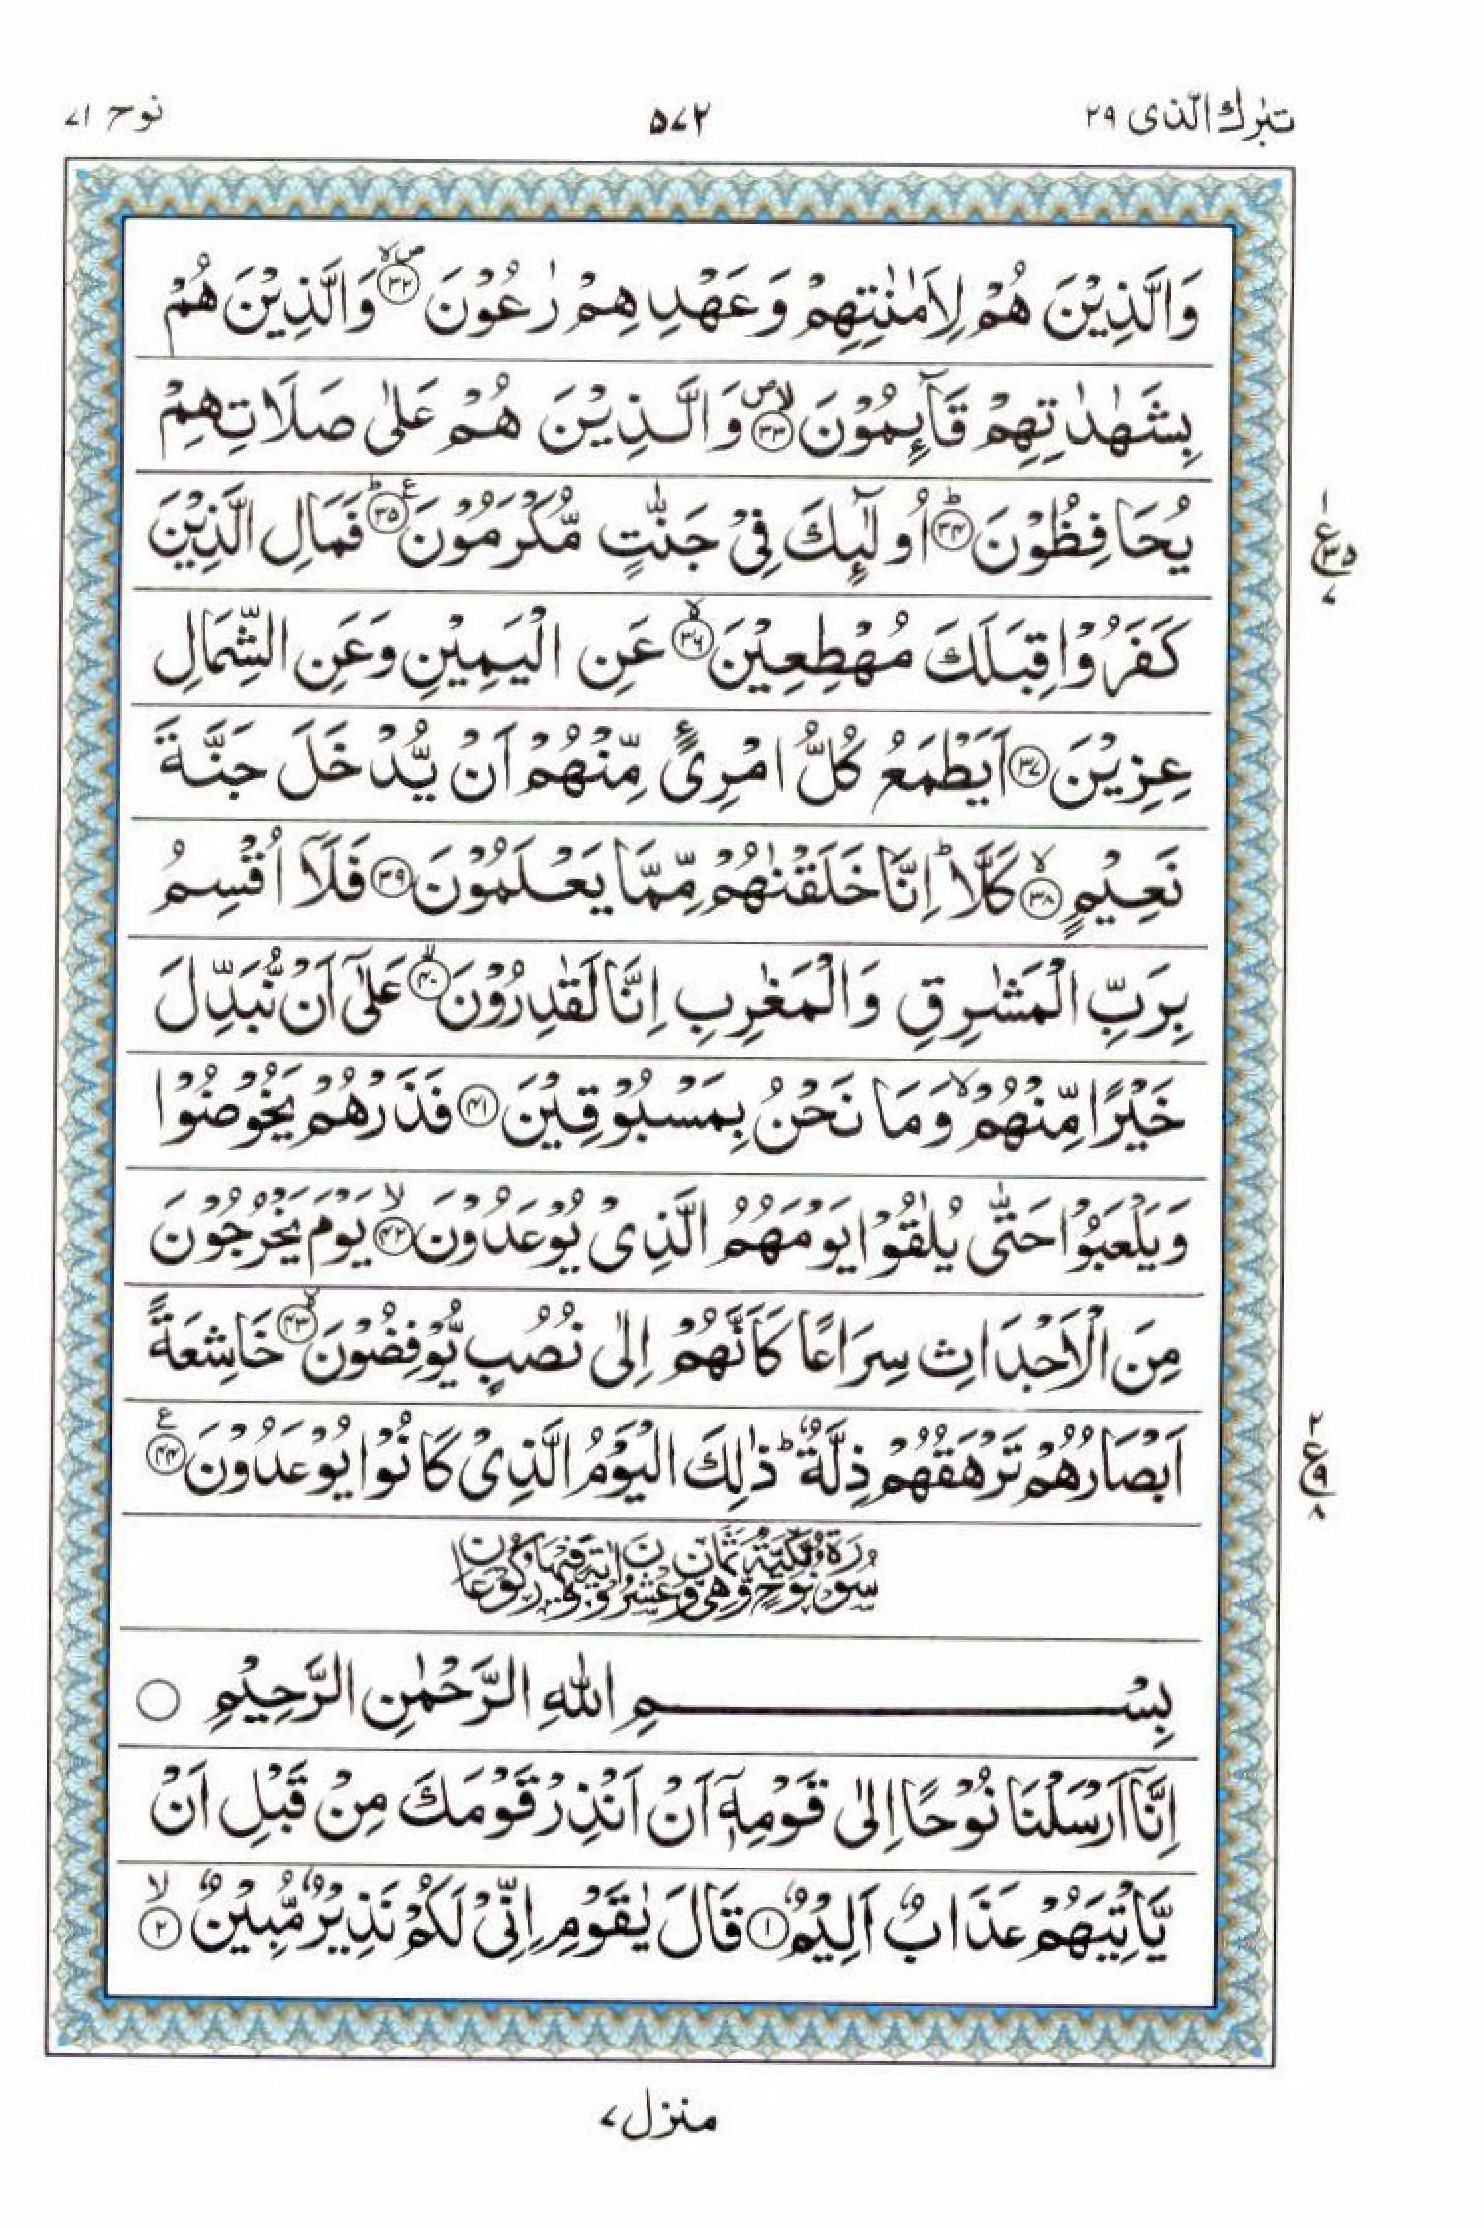 تبٰرك الّذی ۲۹
۵۷۲
نوح ۷۱
وَالَّذِيْنَ هُمْ لِاَمٰنٰتِهِمْ وَعَهْدِهِمْ رٰعُوْنَ ۪ۙۖ‏﴿۳۲﴾ وَالَّذِيْنَ هُمْ
بِشَهٰدٰتِهِمْ قَآىِٕمُوْنَ ۪ۙۖ‏﴿۳۳﴾ وَالَّذِيْنَ هُمْ عَلٰى صَلَاتِهِمْ
يُحَافِظُوْنَ ؕ‏﴿۳۴﴾ اُولٰٓىِٕكَ فِىْ جَنّٰتٍ مُّكْرَمُوْنَ ؕ ع‏﴿۳۵﴾ فَمَالِ الَّذِيْنَ
كَفَرُوْا قِبَلَكَ مُهْطِعِيْنَ ۙ‏﴿۳۶﴾ عَنِ الْيَمِيْنِ وَعَنِ الشِّمَالِ
عِزِيْنَ ﴿۳۷﴾ اَيَطْمَعُ كُلُّ امْرِئٍ مِّنْهُمْ اَنْ يُّدْخَلَ جَنَّةَ
نَعِيْمٍ ۙ‏﴿۳۸﴾ كَلَّا ؕ اِنَّا خَلَقْنٰهُمْ مِّمَّا يَعْلَمُوْنَ ﴿۳۹﴾ فَلَآ اُقْسِمُ
بِرَبِّ الْمَشٰرِقِ وَالْمَغٰرِبِ اِنَّا لَقٰدِرُوْنَ ۙ‏﴿۴۰﴾ عَلٰٓى اَنْ نُّبَدِّلَ
خَيْرًا مِّنْهُمْ ۙ وَمَا نَحْنُ بِمَسْبُوْقِيْنَ ﴿۴۱﴾ فَذَرْهُمْ يَخُوْضُوْا
وَيَلْعَبُوْا حَتّٰى يُلٰقُوْا يَوْمَهُمُ الَّذِىْ يُوْعَدُوْنَ ۙ‏﴿۴۲﴾ يَوْمَ يَخْرُجُوْنَ
مِنَ الْاَجْدَاثِ سِرَاعًا كَاَنَّهُمْ اِلٰى نُصُبٍ يُّوْفِضُوْنَ ۙ‏﴿۴۳﴾ خَاشِعَةً
اَبْصَارُهُمْ تَرْهَقُهُمْ ذِلَّةٌ ؕ ذٰلِكَ الْيَوْمُ الَّذِىْ كَانُوْا يُوْعَدُوْنَ ع‏﴿۴۴﴾
سُوْرَةُ نُوْحٍ مَّكِّيَّةٌ وَّهِىَ ثَمَانٍ وَّعِشْرُوْنَ اٰيَةً وَّفِيْهَا رُكُوْعَانِ
بِسْمِ اللّٰهِ الرَّحْمٰنِ الرَّحِيْمِ ○
اِنَّآ اَرْسَلْنَا نُوْحًا اِلٰى قَوْمِهٖٓ اَنْ اَنْذِرْ قَوْمَكَ مِنْ قَبْلِ اَنْ
يَّاْتِيَهُمْ عَذَابٌ اَلِيْمٌ ﴿۱﴾ قَالَ يٰقَوْمِ اِنِّىْ لَكُمْ نَذِيْرٌ مُّبِيْنٌ ۙ‏﴿۲﴾
۱
ع ۳۵
۷
۲
ع ۹
۸
منزل ۷